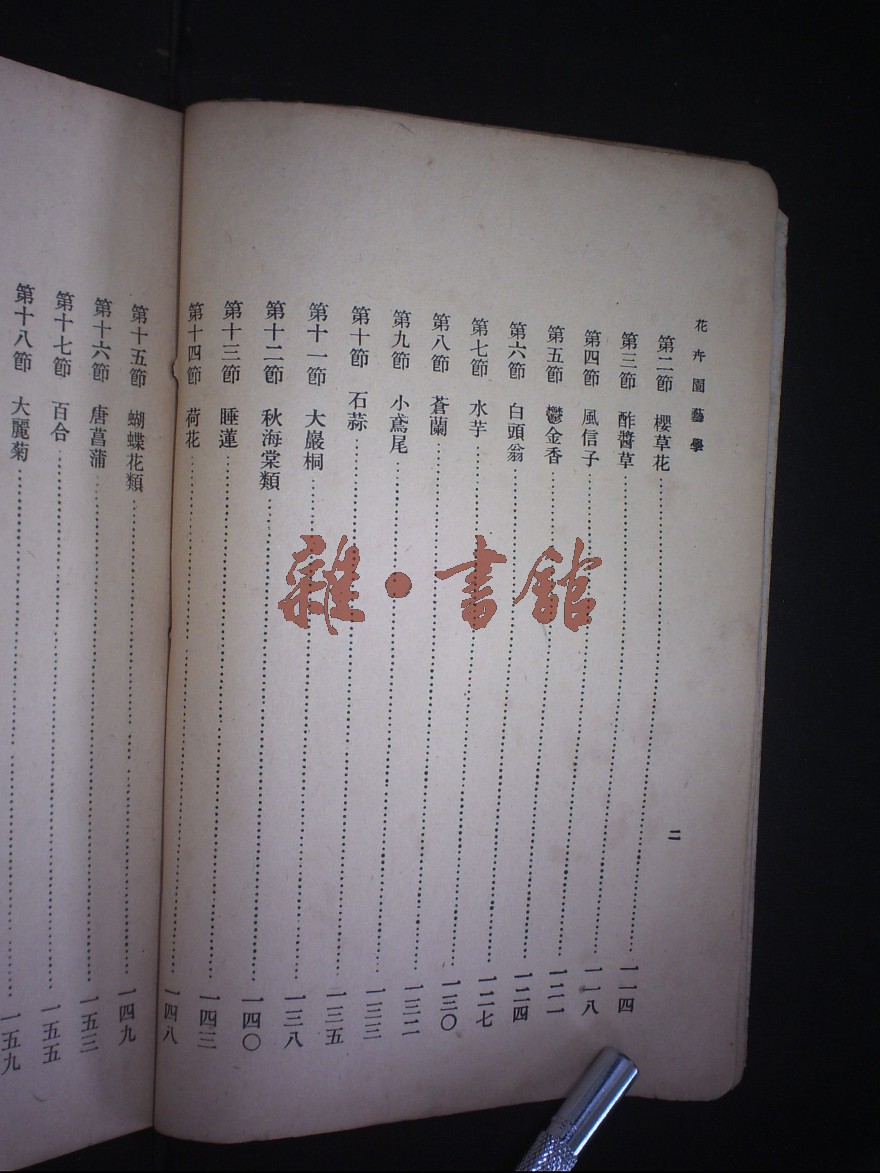 花卉園藝學
二
第二節 櫻草花……一一四
第三節 酢醬草……一一八
第四節 風信子……一二一
第五節 鬱金香……一二四
第六節 白頭翁……一二七
第七節 水芋……一三〇
第八節 蒼蘭……一三二
第九節 小鳶尾……一三三
第十節 石蒜……一三五
第十一節 大巖桐……一三八
第十二節 秋海棠類……一四〇
第十三節 睡蓮……一四三
第十四節 荷花……一四八
第十五節 蝴蝶花類……一四九
第十六節 唐菖蒲……一五三
第十七節 百合……一五五
第十八節 大麗菊……一五九
雜·書館